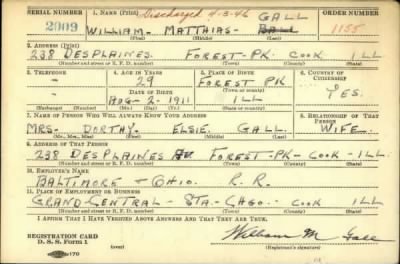 SERIAL NUMBER 1. NAME (Print) Discharged 4-3-46 ORDER NUMBER
2009 WILLIAM- MATTHIAS- GALL 1155
(First) (Middle) (Last)
2. ADDRESS (Print)
238 DESPLAINES. FOREST-PK. COOK ILL
(Number and street or R. F. D. number) (Town) (County) (State)
3. TELEPHONE 4. AGE IN YEARS 5. PLACE OF BIRTH 6. COUNTRY OF CITIZENSHIP
- 29 FOREST PK
DATE OF BIRTH (Town or county)
- AUG- 2- 1911 ILL YES.
(Exchange) (Number) (Mo.) (Day) (Yr.) (State or country)
7. NAME OF PERSON WHO WILL ALWAYS KNOW YOUR ADDRESS 8. RELATIONSHIP OF THAT PERSON
MRS- DORTHY. ELSIE GALL WIFE-
(Mr., Mrs., Miss) (First) (Middle) (Last)
9. ADDRESS OF THAT PERSON
238 DESPLAINES AV FOREST-PK- COOK- ILL.
(Number and street or R. F. D. number) (Town) (County) (State)
10. EMPLOYER'S NAME
BALTIMORE + OHIO. R. R.
11. PLACE OF EMPLOYMENT OR BUSINESS
GRAND CENTRAL- STA- CHGO. COOK ILL
(Number and street or R. F. D. number) (Town) (County) (State)
I AFFIRM THAT I HAVE VERIFIED ABOVE ANSWERS AND THAT THEY ARE TRUE.
REGISTRATION CARD
D. S. S. Form 1 William M Gall
(over) (Registrant's signature)